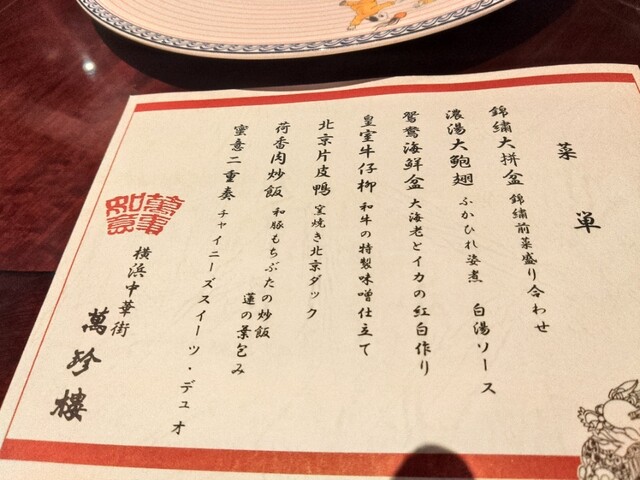 菜単
錦繍大拼盆 錦繍前菜盛り合わせ
濃湯大鮑翅 ふかひれ姿煮 白湯ソース
鴛鴦海鮮盆 大海老とイカの紅白作り
皇室牛仔柳 和牛の特製味噌仕立て
北京片皮鴨 窯焼き北京ダック
荷香肉炒飯 和豚もちぶたの炒飯
蓮の葉包み
蜜意二重奏 チャイニーズスイーツ・デュオ
萬事如意
横浜中華街
萬珍樓